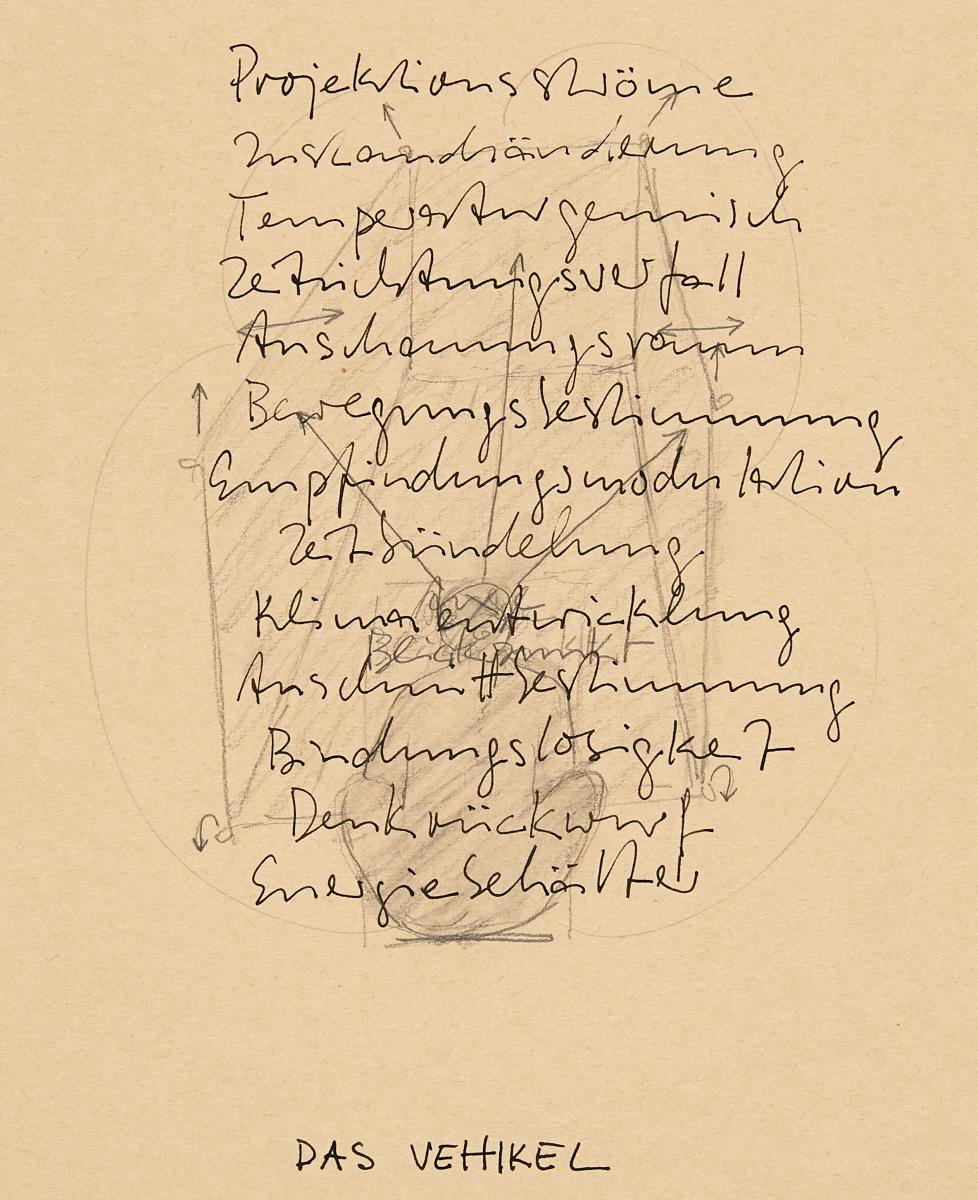 Projektionsströme
Zustandsänderung
Temperaturgemisch
Zeitrichtungsverfall
Anschauungsraum
Bewegungsbestimmung
Empfindungsmodulation
Zeitbündelung
Klimaentwicklung
Blickpunkt
Ausschnittbestimmung
Bindungslosigkeit
Denkrückwurf
Energiebehälter
DAS VEHIKEL